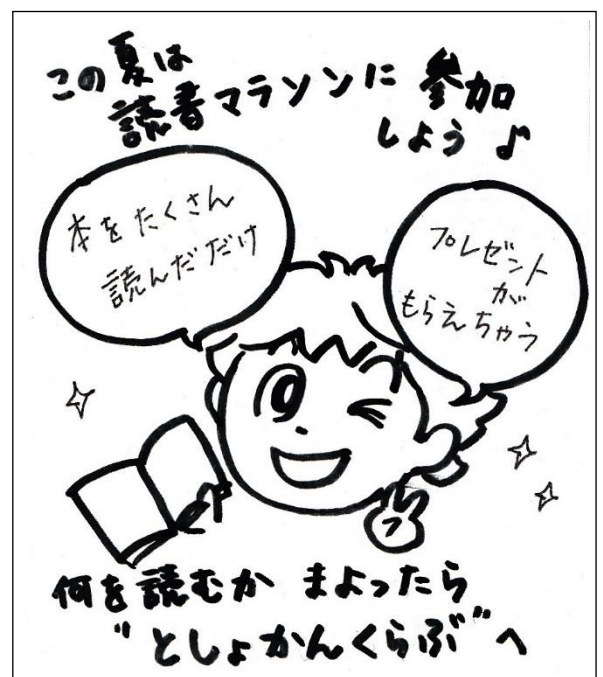 この夏は
読書マラソンに参加
しよう♪
本をたくさん
読んだだけ
プレゼント
が
もらえちゃう
何を読むか まよったら
"としょかんくらぶ"へ